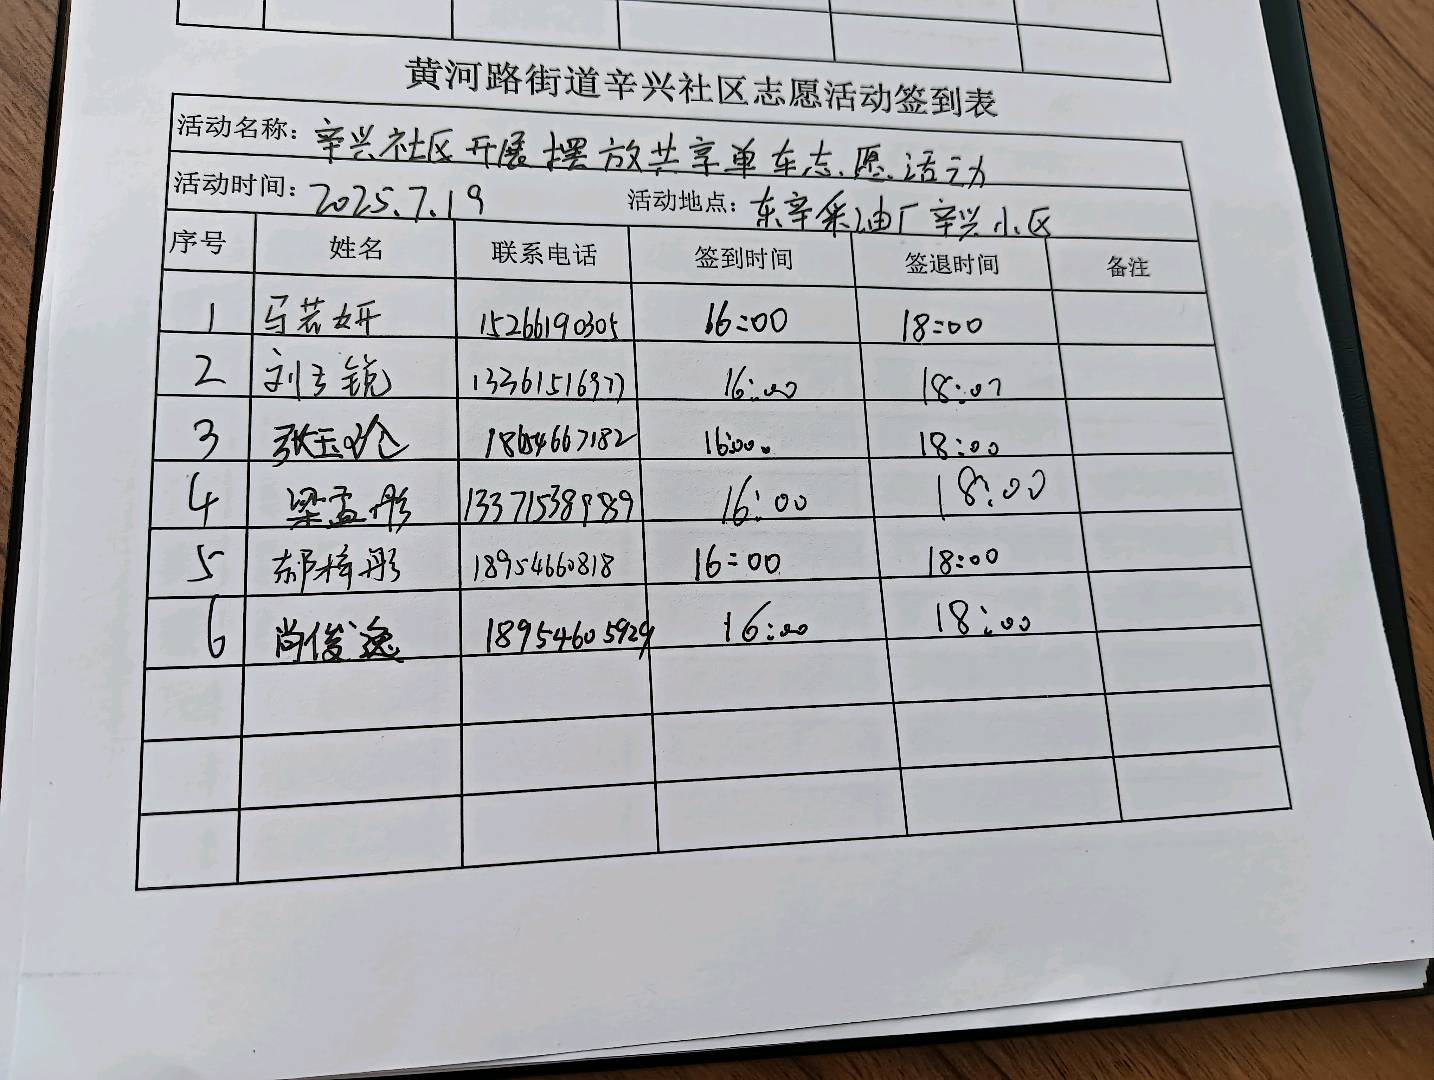 黄河路街道辛兴社区志愿活动签到表
活动名称：辛兴社区开展摆放共享单车志愿活动
活动时间：2025.7.19 活动地点：东辛采油厂辛兴小区
序号 姓名 联系电话 签到时间 签退时间 备注
1 马若妍 15266190305 16:00 18:00
2 刘子锐 13361516977 16:00 18:00
3 张玉 18654667182 16:00 18:00
4 梁孟彤 13371538989 16:00 18:00
5 郝梓彤 18954660818 16:00 18:00
6 尚俊逸 18954605929 16:00 18:00